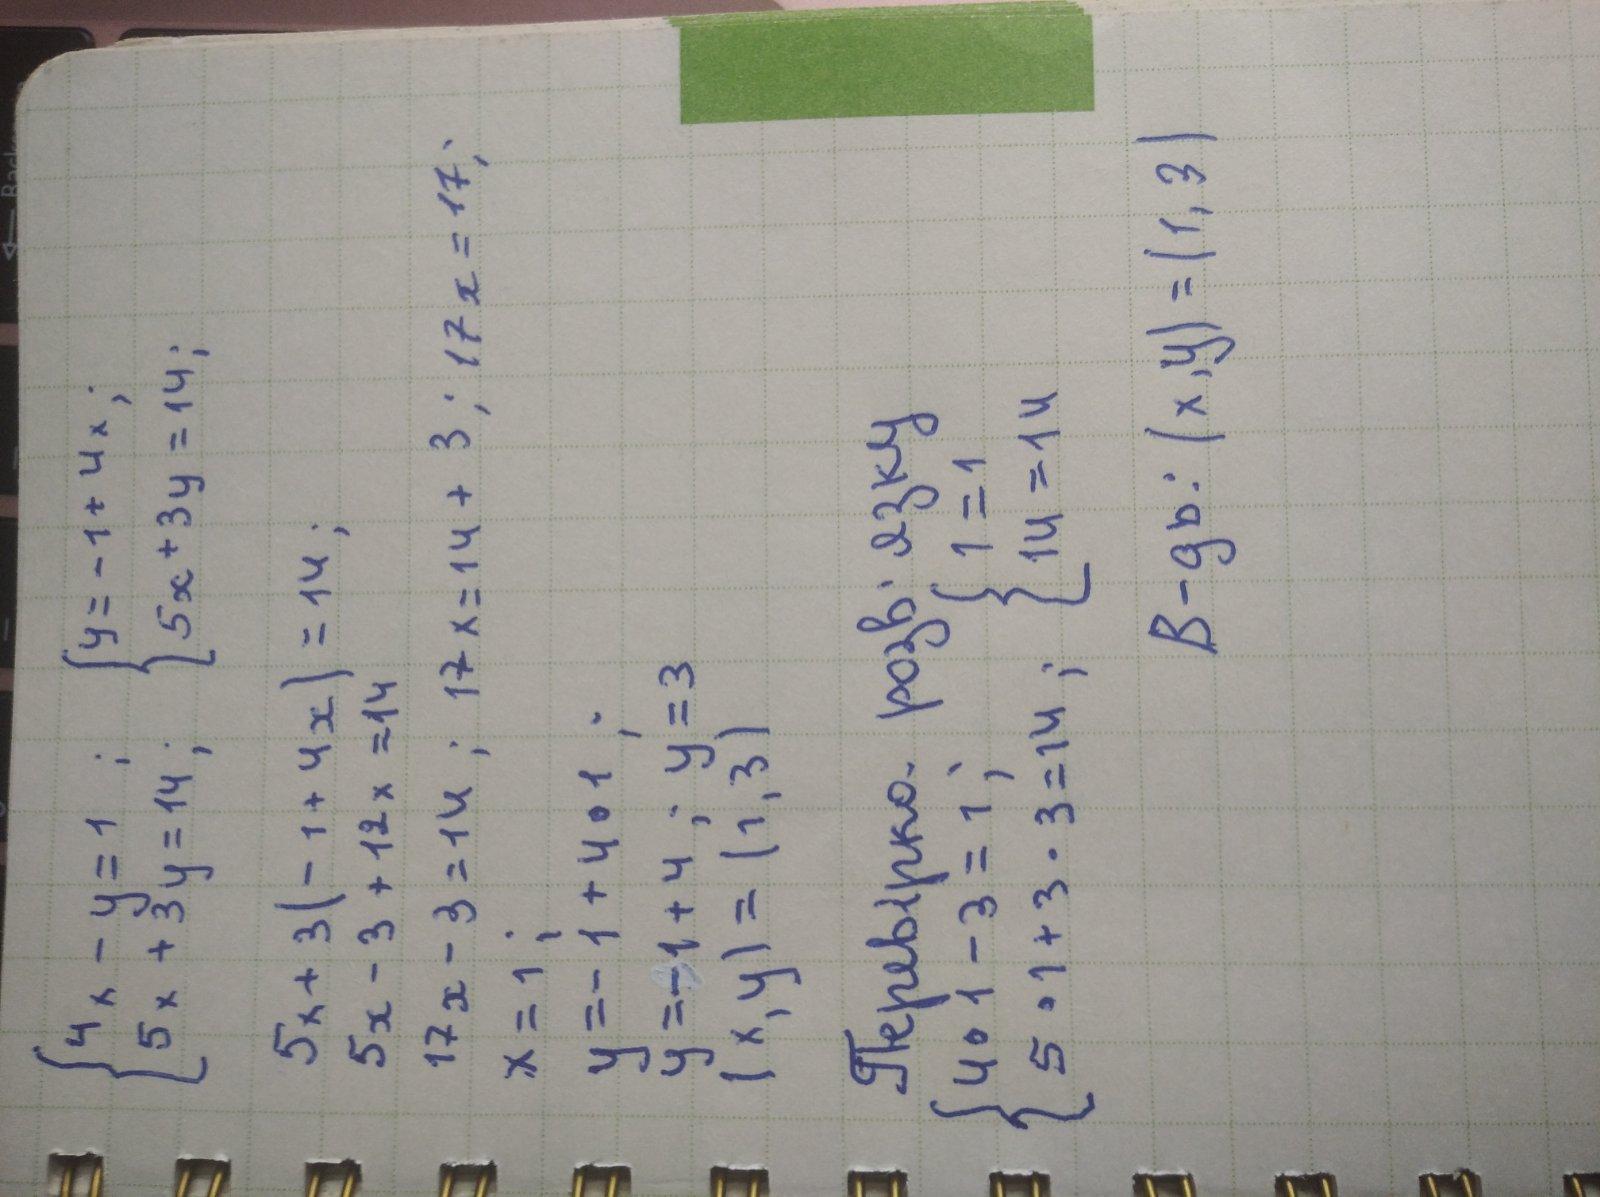 {4x - y = 1 ; {y = -1 + 4x ;
5x + 3y = 14 ; 5x + 3y = 14 ;
5x + 3(-1 + 4x) = 14 ;
5x - 3 + 12x = 14
17x - 3 = 14 ; 17x = 14 + 3 ; 17x = 17 ;
x = 1 ;
y = -1 + 4 • 1 ;
y = -1 + 4 ; y = 3
(x, y) = (1, 3)
Перевірка розв'язку
{4 • 1 - 3 = 1 ; {1 = 1
5 • 1 + 3 · 3 = 14 ; 14 = 14
В-дь: (x, y) = (1, 3)